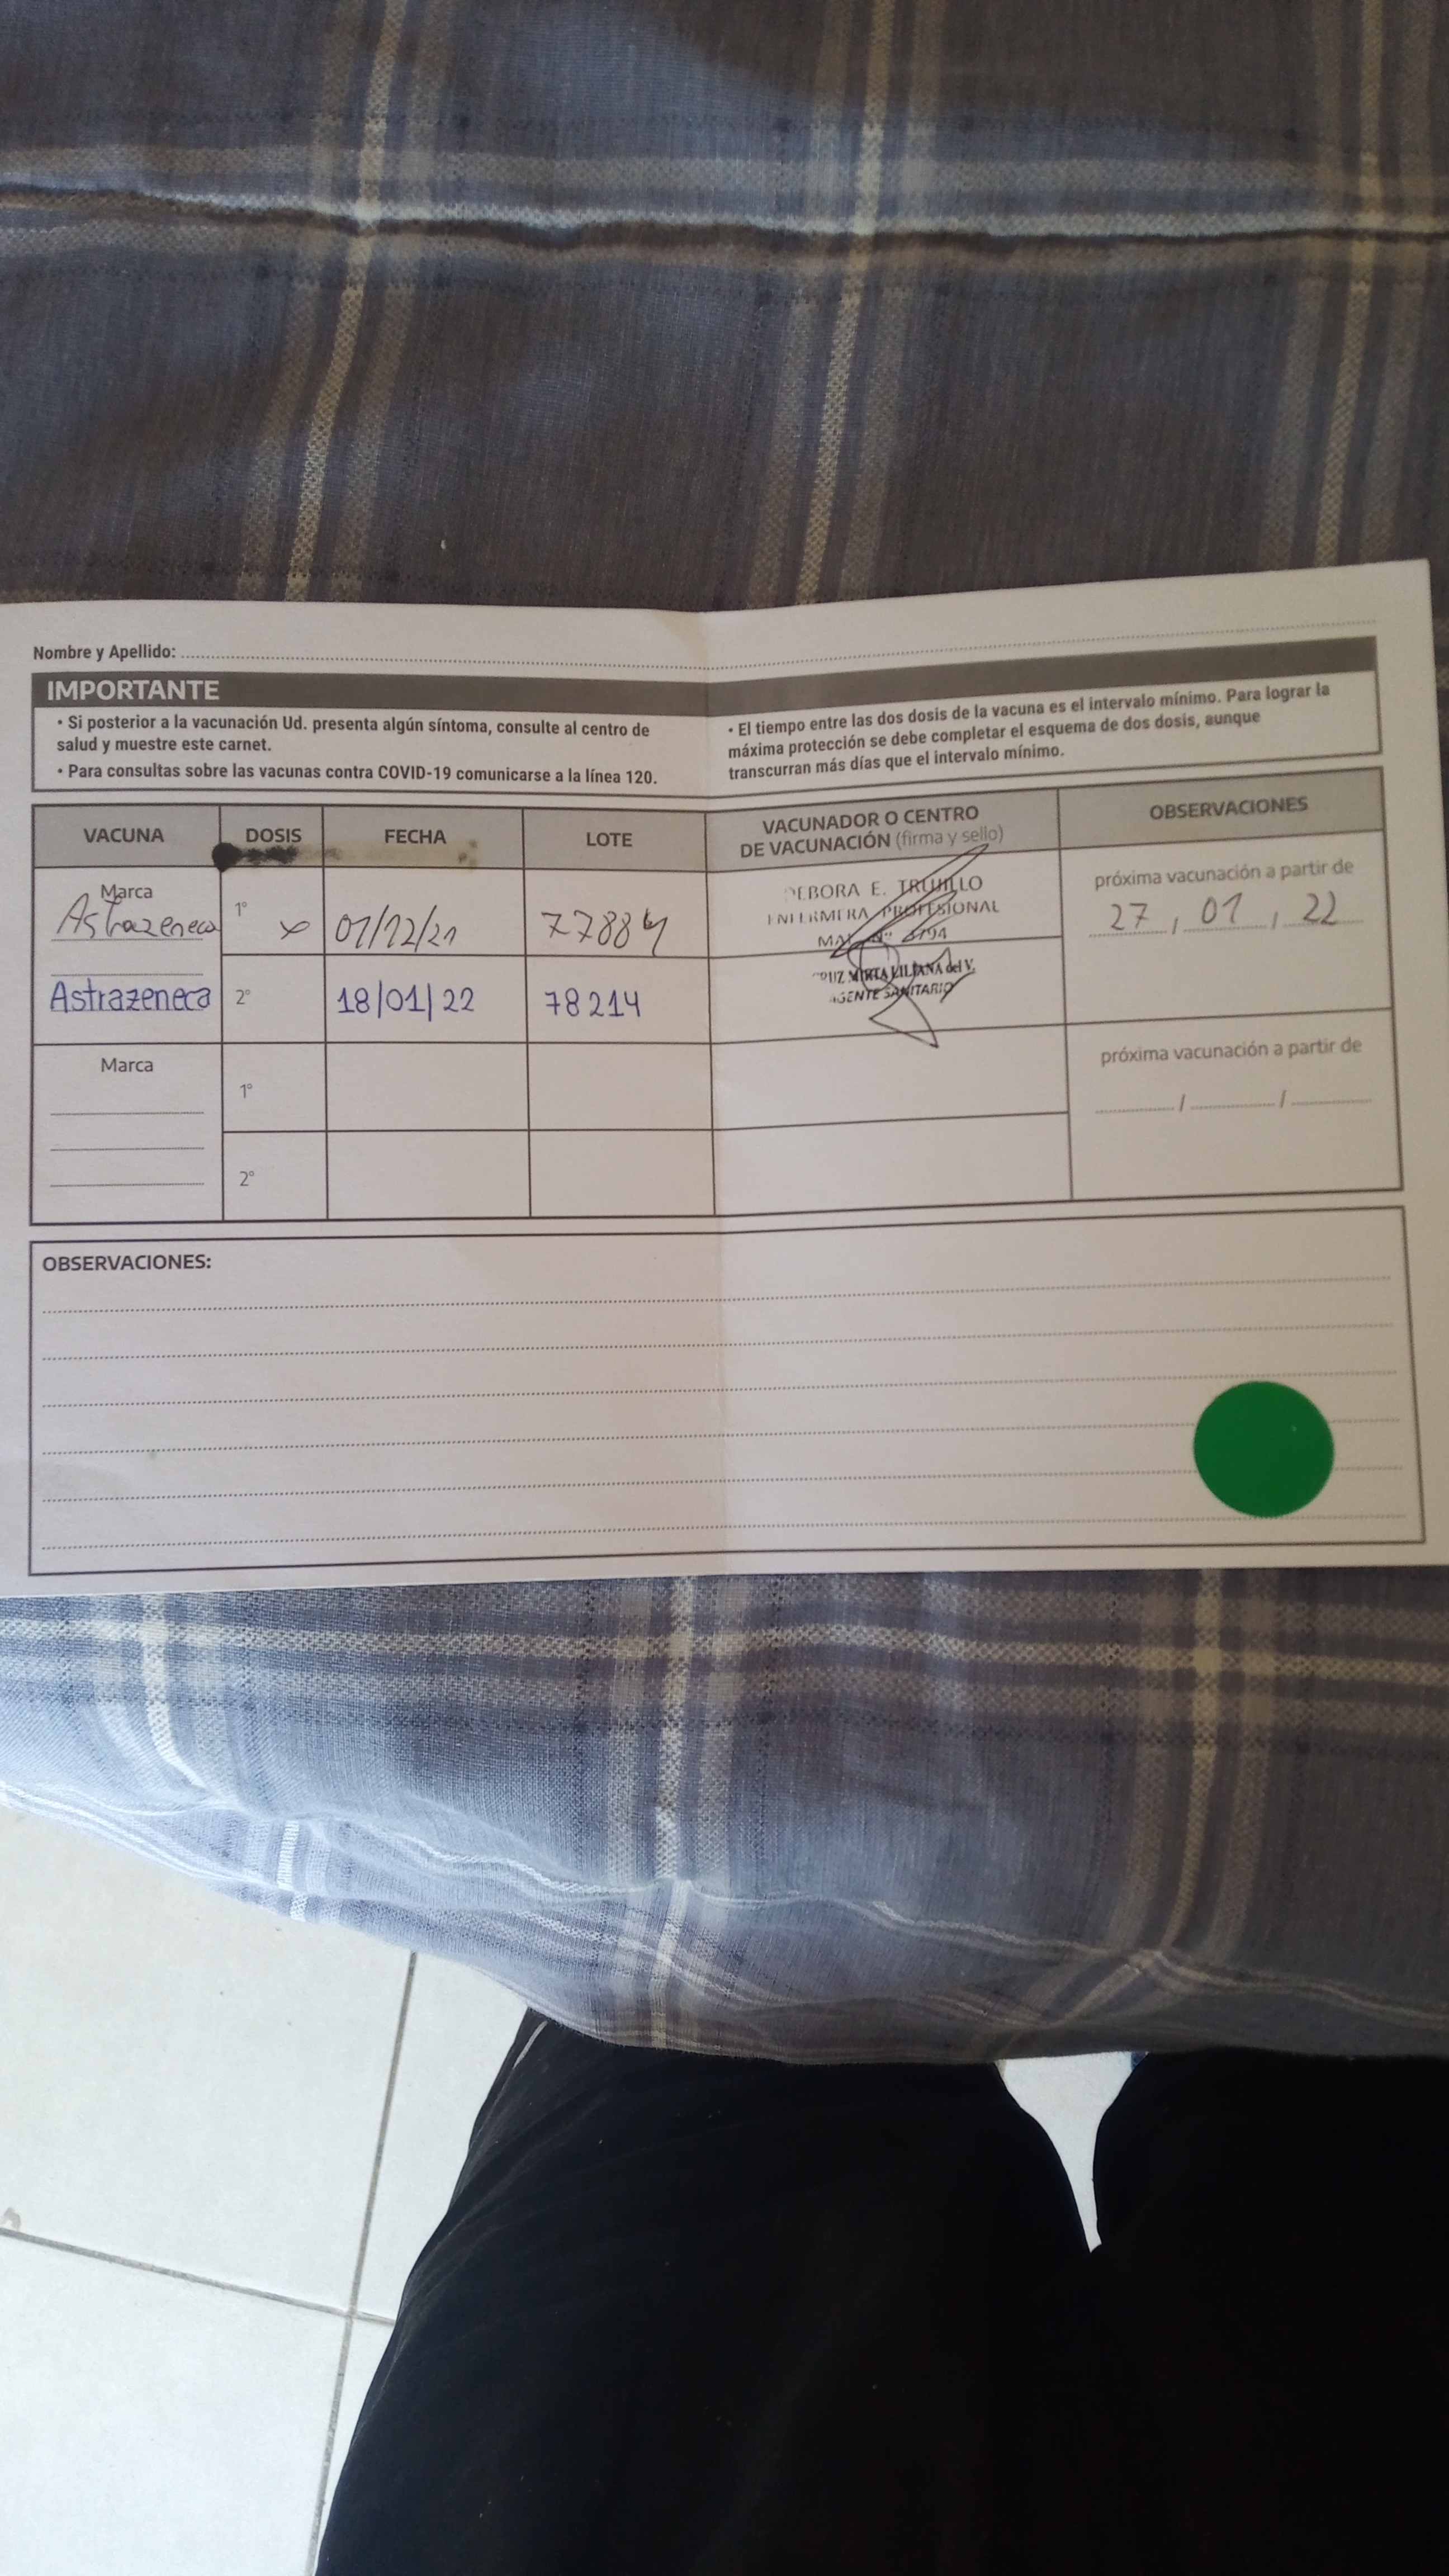 Nombre y Apellido:
IMPORTANTE
• Si posterior a la vacunación Ud. presenta algún síntoma, consulte al centro de
salud y muestre este carnet.
• Para consultas sobre las vacunas contra COVID-19 comunicarse a la línea 120.
• El tiempo entre las dos dosis de la vacuna es el intervalo mínimo. Para lograr la
máxima protección se debe completar el esquema de dos dosis, aunque
transcurran más días que el intervalo mínimo.
VACUNA DOSIS FECHA LOTE VACUNADOR O CENTRO
DE VACUNACIÓN (firma y sello) OBSERVACIONES
Marca
Astrazeneca 1° x 01/12/21 77884
DEBORA E. TRUJILLO
ENFERMERA PROFESIONAL
próxima vacunación a partir de
27, 01, 22
Astrazeneca 2° 18/01/22 78214
MIRTA LILIANA del V.
AGENTE SANITARIO
Marca
1°
próxima vacunación a partir de
/ /
2°
OBSERVACIONES: